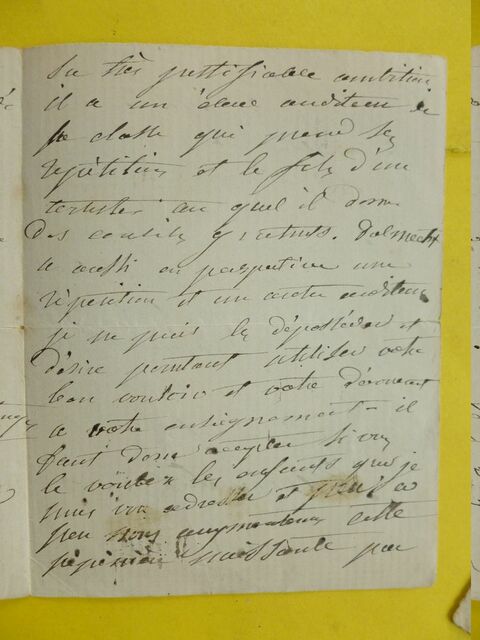 sa très justifiable ambition.
il a un élève auditeur de
sa classe qui prend ses
répétitions et le fils d'un
auquel il donne
des conseils gratuits. Dalmacht
a aussi en perspective une
répétition et un autre auditeur
je ne puis les déposséder et
désire pourtant utiliser votre
bon vouloir et votre dévouement
a votre enseignement - il
faut donc accepter si vous
le voulez les enfants que je
puis vous adresser et peu a
peu nous augmenterons cette
pépinière naissante par